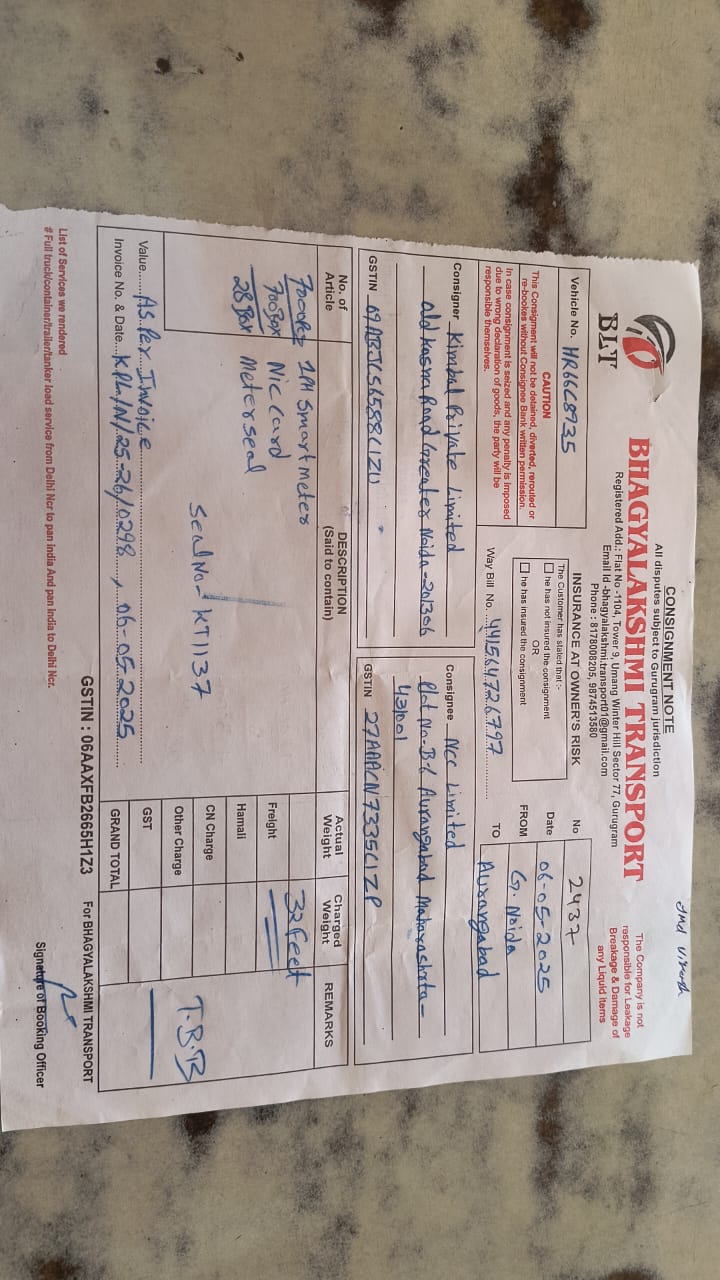 CONSIGNMENT NOTE
All disputes subject to Gurugram jurisdiction
BLT
BHAGYALAKSHMI TRANSPORT
Registered Add.: Flat No -1104, Tower 9, Umang Winter Hill Sector 77, Gurugram
Email Id -bhagyalakshmi.transport01@gmail.com
Phone : 8178008205, 9874513580
The Company is not
responsible for Leakage
Breakage & Damage of
any Liquid Items
Vehicle No. HR16C8735
CAUTION
This Consignment will not be detained, diverted, rerouted or
re-bookes without Consignee Bank written permission.
In case consignment is seized and any penalty is imposed
due to wrong declaration of goods, the party will be
responsible themselves.
INSURANCE AT OWNER'S RISK
The Customer has stated that :-
he has not insured the consignment
OR
he has insured the consignment
Way Bill No. 441564726797
No 2437
Date 06-05-2025
FROM G. Noida
TO Aurangabad
Consigner Kimbal Private Limited
old kasna Road Greater Noida-201306
GSTIN
Consignee Ncc Limited
Plot No-B-6 Aurangabad Maharashtra-
431001
GSTIN 27AAACN7335C1ZP
No. of Article
DESCRIPTION (Said to contain)
Actual Weight
Charged Weight
REMARKS
1PH Smart meter
700Box Nic card
28 Box Meter seal
Seal No- KT1137
32 feet
Freight
Hamali
CN Charge
Other Charge
GST
GRAND TOTAL
T.B.B
Value As Per Invoice
Invoice No. & Date KPL/N/25-26/0298, 06-05-2025
GSTIN : 06AAXFB2665H1Z3
For BHAGYALAKSHMI TRANSPORT
List of Services we rendered
# Full truck/container/trailer/tanker load service from Delhi Ncr to pan india And pan India to Delhi Ncr.
Signature of Booking Officer